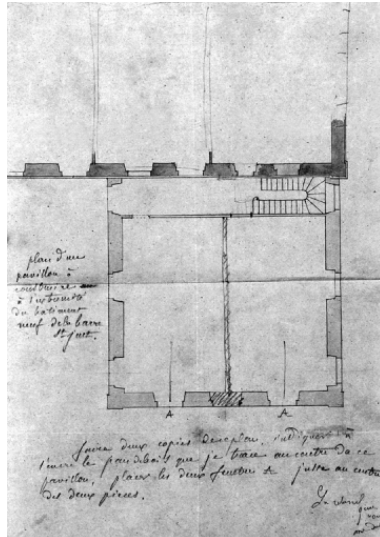 plan d'un
pavillon à
construire
à l'extremité
du batiment
neuf de la barre
St just.
A
A
faire deux copies de ce plan,
l'encre le pan de bois que je trace au centre de ce
pavillon, placer les deux fenetres A juste au centre
des deux pieces.